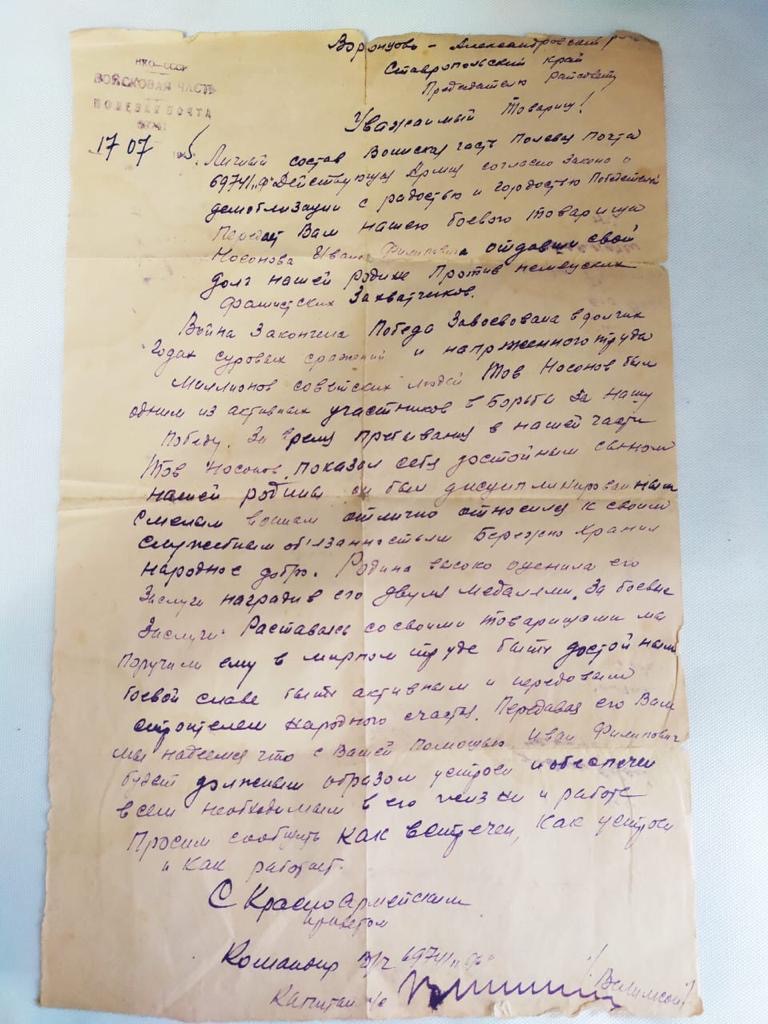 Воронцово-Александровский р
Ставропольский край
Председателю райсовету
НКО-СССР
ВОЙСКОВАЯ ЧАСТЬ
ПОЛЕВАЯ ПОЧТА
17 07
Уважаимый Товарищ!
Личный состав Воинская часть Полевая Почта
69741 "Ф" Действующая Армия согласно Закона о
демоблизации с радостью и гордостью Победителей
Передает Вам нашего боевого Товарища
Носонова Ивана Филиповича отдавши свой
долг нашей родине Против немецких
Фашистских Захватчиков.
Война Закончена Победа Завоевована в долгих
годах суровых сражений и напряженного труда
Миллионов советских людей Тов Носонов был
одним из активных участников в Борьбе За нашу
Победу. За время пребывания в нашей части
Тов Носонов показал себя достойным сыном
нашей родины он был дисциплинированным
Смелым воином отлично относился к своим
служебным об'язанностям Бережно Хранил
народное добро. Родина высоко оценила его
Заслуги наградив его двумя медалями. За боевые
Заслуги. Раставаясь со своими Товарищами мы
поручили ему в мирном труде быть достойным
боевой славе быть активным и передовым
строителем народного счастья. Передавая его Вам
мы надеемся что с Вашей Помощью Иван Филипович
будет должным образом устроен и обеспечен
всем необходимым в его жизни и работе
Просим сообщить как встречен, Как устроен
и как работает.
С Красно Армейским
приветом
Командир В/ч 69741 "Ф"
Капитан